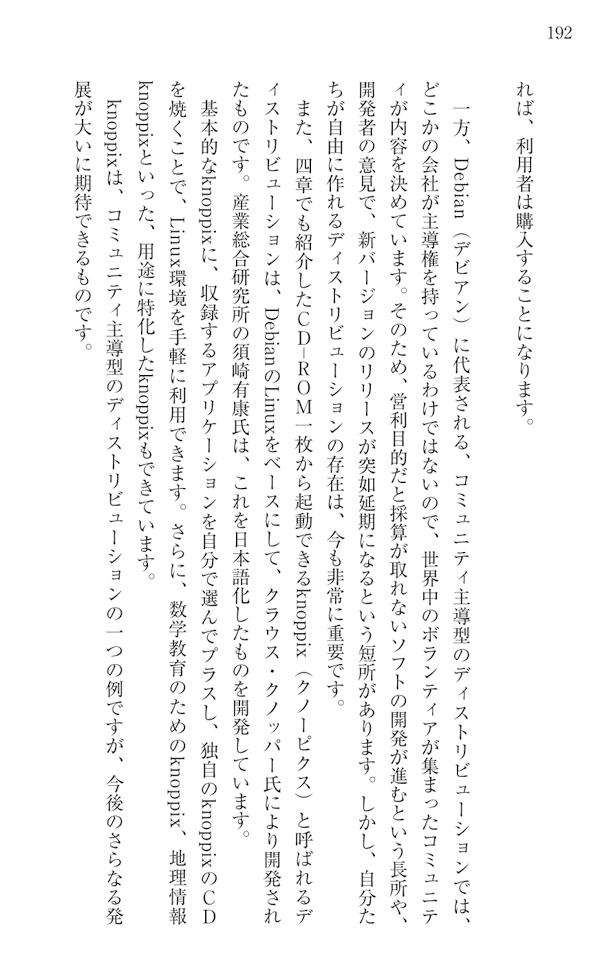 192
れば、利用者は購入することになります。
一方、Debian（デビアン）に代表される、コミュニティ主導型のディストリビューションでは、
どこかの会社が主導権を持っているわけではないので、世界中のボランティアが集まったコミュニテ
ィが内容を決めています。そのため、営利目的だと採算が取れないソフトの開発が進むという長所や、
開発者の意見で、新バージョンのリリースが突如延期になるという短所があります。しかし、自分た
ちが自由に作れるディストリビューションの存在は、今も非常に重要です。
また、四章でも紹介したＣＤ−ＲＯＭ一枚から起動できるknoppix（クノーピクス）と呼ばれるデ
ィストリビューションは、DebianのLinuxをベースにして、クラウス・クノッパー氏により開発され
たものです。産業総合研究所の須崎有康氏は、これを日本語化したものを開発しています。
基本的なknoppixに、収録するアプリケーションを自分で選んでプラスし、独自のknoppixのＣＤ
を焼くことで、Linux環境を手軽に利用できます。さらに、数学教育のためのknoppix、地理情報
knoppixといった、用途に特化したknoppixもできています。
knoppixは、コミュニティ主導型のディストリビューションの一つの例ですが、今後のさらなる発
展が大いに期待できるものです。